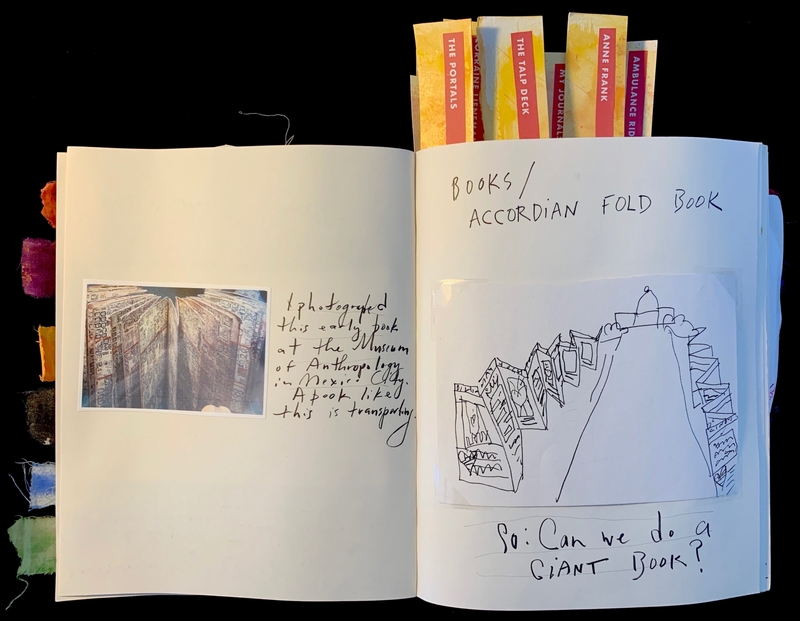 THE PORTALS
LORRAINE
THE TALP DECK
MY JOURNAL
ANNE FRANK
AMBULANCE RID
I photografed
this early book
at the Museum
of Anthropology
in Mexico City.
A book like
this is transporting.
BOOKS/
ACCORDIAN FOLD BOOK
So: Can we do a
GIANT BOOK?